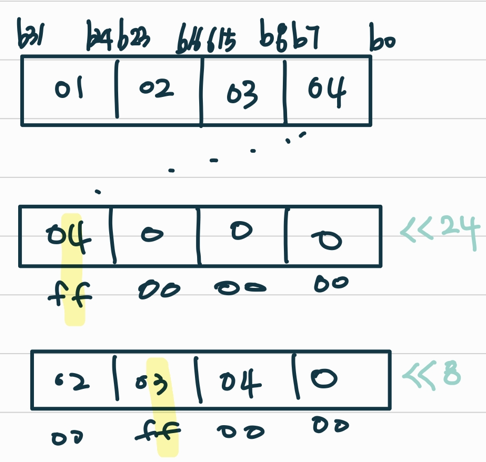 b31 b24 b23 b16 b15 b8 b7 b0
01 02 03 04
04 0 0 0 <<24
ff 00 00 00
02 03 04 0 <<8
00 ff 00 00